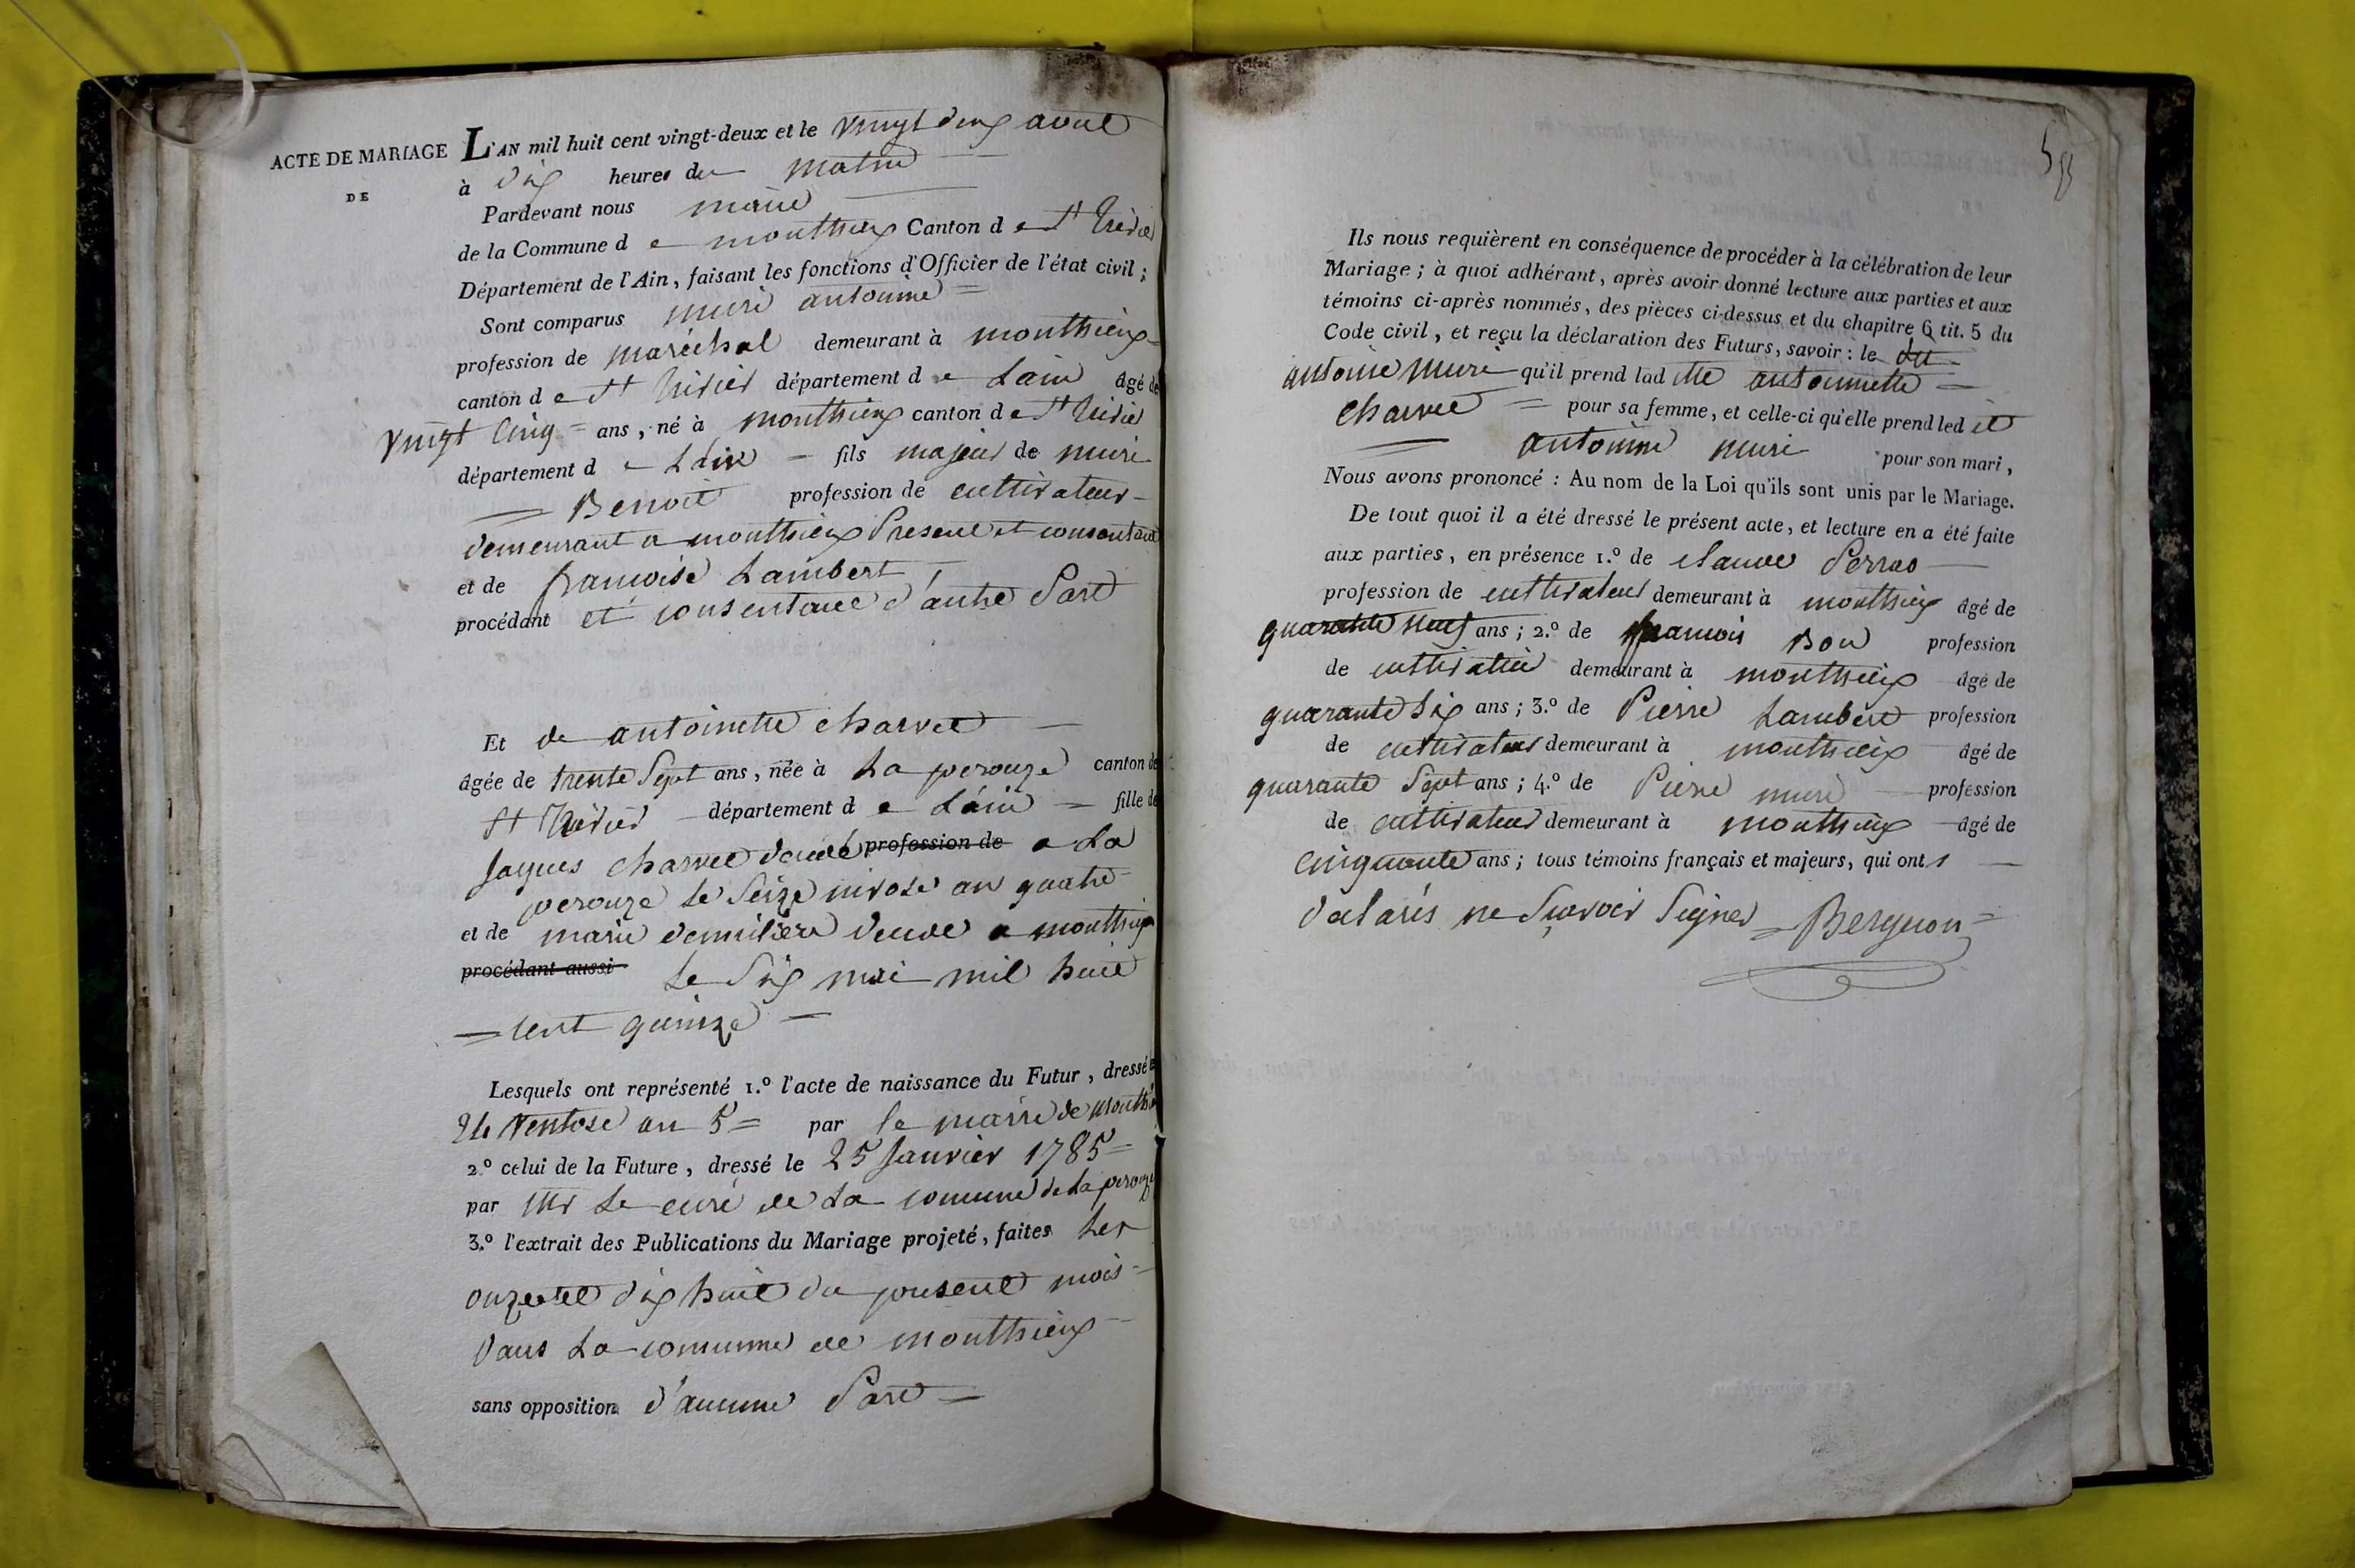 ACTE DE MARIAGE
DE
L'AN mil huit cent vingt-deux et le vingt deux avril
à dix heures du matin
Pardevant nous maire
de la Commune de monthieux Canton de St trivier
Département de l'Ain, faisant les fonctions d'Officier de l'état civil;
Sont comparus muri antoine
profession de maréchal demeurant à monthieux
canton de St trivier département de Lain âgé de
vingt cinq ans, né à monthieux canton de St trivier
département de Lain fils majeur de muri
Benoit profession de cultivateur
demeurant a monthieux Present et consentant
et de francoise Lambert
procédant et consentante d'autre Part
Et de antoinette charvet
âgée de trente Sept ans, née à La perouze canton de
St trivier département de Lain fille de
Jaques charvet décédé profession de a La
perouze le Seize nivose an quatre
et de marie decedée a monthieux
procédant aussi Le Six mai mil huit
cent quinze
Lesquels ont représenté 1.º l'acte de naissance du Futur, dressé le
24 ventose an 5 par le maire de monthieux
2.º celui de la Future, dressé le 25 Janvier 1785
par Mr Le curé de La comune de La perouze
3.º l'extrait des Publications du Mariage projeté, faites Les
onze et dix huit du present mois
dans La comune de monthieux
sans opposition d'aucune Part
58
Ils nous requièrent en conséquence de procéder à la célébration de leur
Mariage; à quoi adhérant, après avoir donné lecture aux parties et aux
témoins ci-après nommés, des pièces ci-dessus et du chapitre 6 tit. 5 du
Code civil, et reçu la déclaration des Futurs, savoir: le dit
antoine muri qu'il prend ladite antoinette
charvet pour sa femme, et celle-ci qu'elle prend ledit
antoine muri pour son mari,
Nous avons prononcé: Au nom de la Loi qu'ils sont unis par le Mariage.
De tout quoi il a été dressé le présent acte, et lecture en a été faite
aux parties, en présence 1.º de claude Perras
profession de cultivateur demeurant à monthieux âgé de
quarante neuf ans; 2.º de francois Bon profession
de cultivateur demeurant à monthieux âgé de
quarante Six ans; 3.º de Pierre Lambert profession
de cultivateur demeurant à monthieux âgé de
quarante Sept ans; 4.º de Pierre muri profession
de cultivateur demeurant à monthieux âgé de
cinquante ans; tous témoins français et majeurs, qui ont
déclarés ne Scavoir Signer Berguon